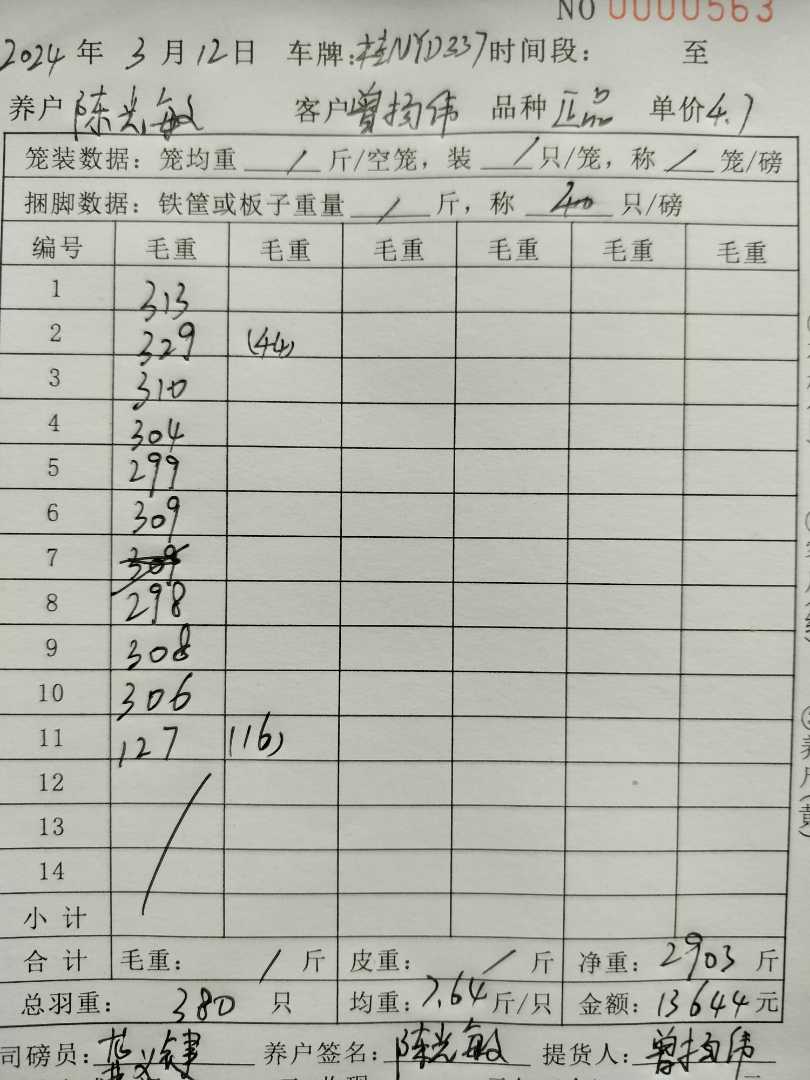 NO 0000563
2024 年 3 月 12 日 车牌:桂NYD337 时间段: 至
养户 陈光敏 客户 曾扬伟 品种 正品 单价 4.7
笼装数据: 笼均重 / 斤/空笼, 装 / 只/笼, 称 / 笼/磅
捆脚数据: 铁筐或板子重量 / 斤, 称 40 只/磅
编号 毛重 毛重 毛重 毛重 毛重 毛重
1 313
2 329 (44)
3 310
4 304
5 299
6 309
7 309
8 298
9 308
10 306
11 127 (16)
12
13
14
小计
合计 毛重: / 斤 皮重: / 斤 净重: 2903 斤
总羽重: 380 只 均重: 7.64 斤/只 金额: 13644 元
司磅员: 养户签名: 陈光敏 提货人: 曾扬伟